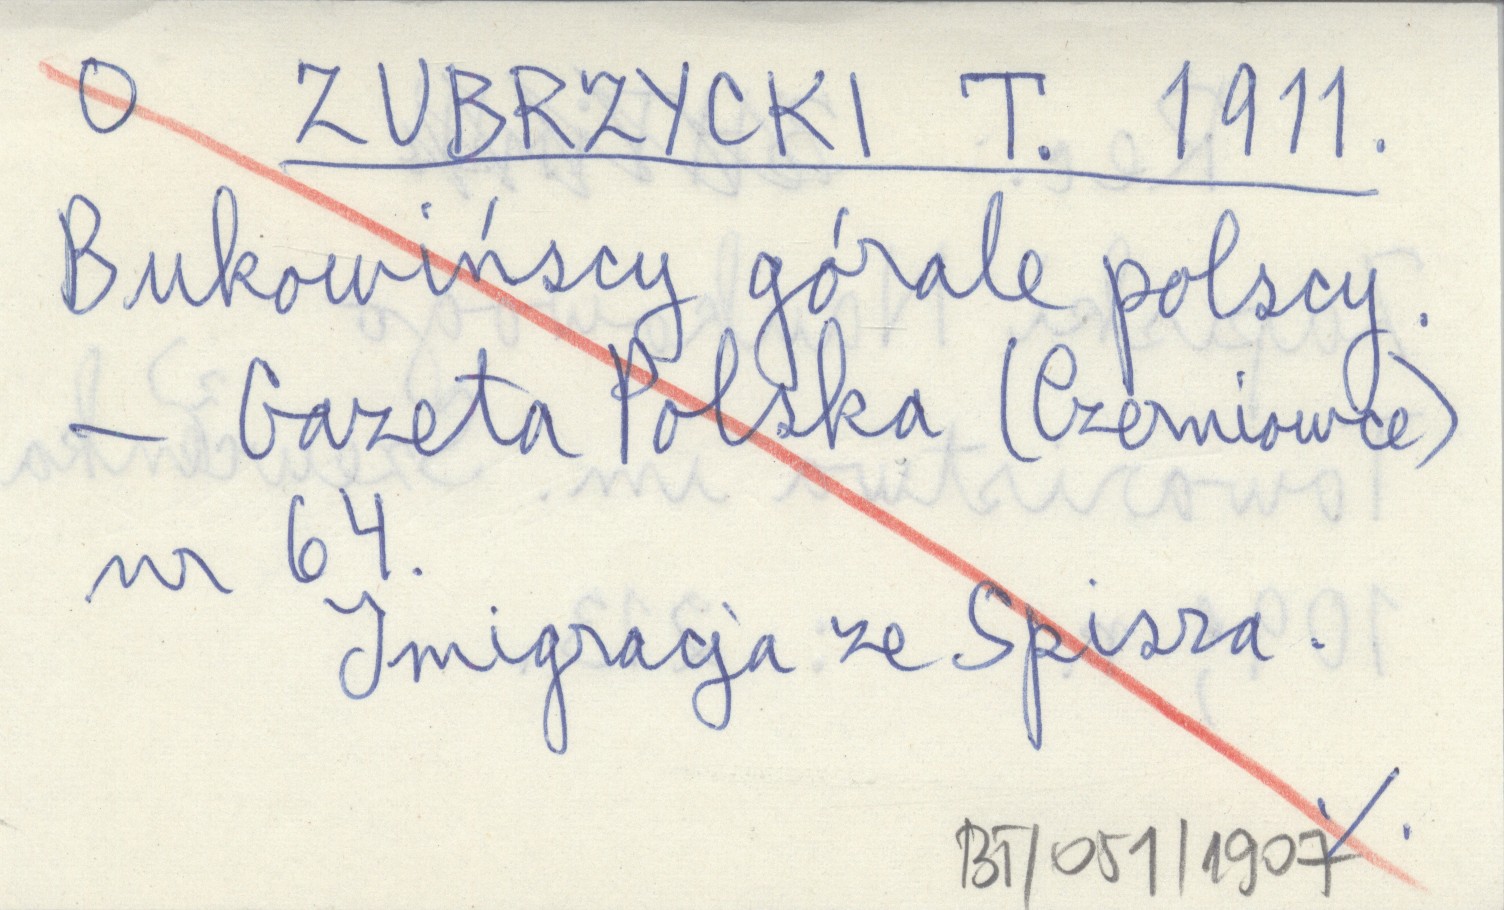 O ZUBRZYCKI T. 1911.
Bukowińscy górale polscy.
— Gazeta Polska (Czerniowce)
nr 64.
Imigracja ze Spisza.
BT/051/1907